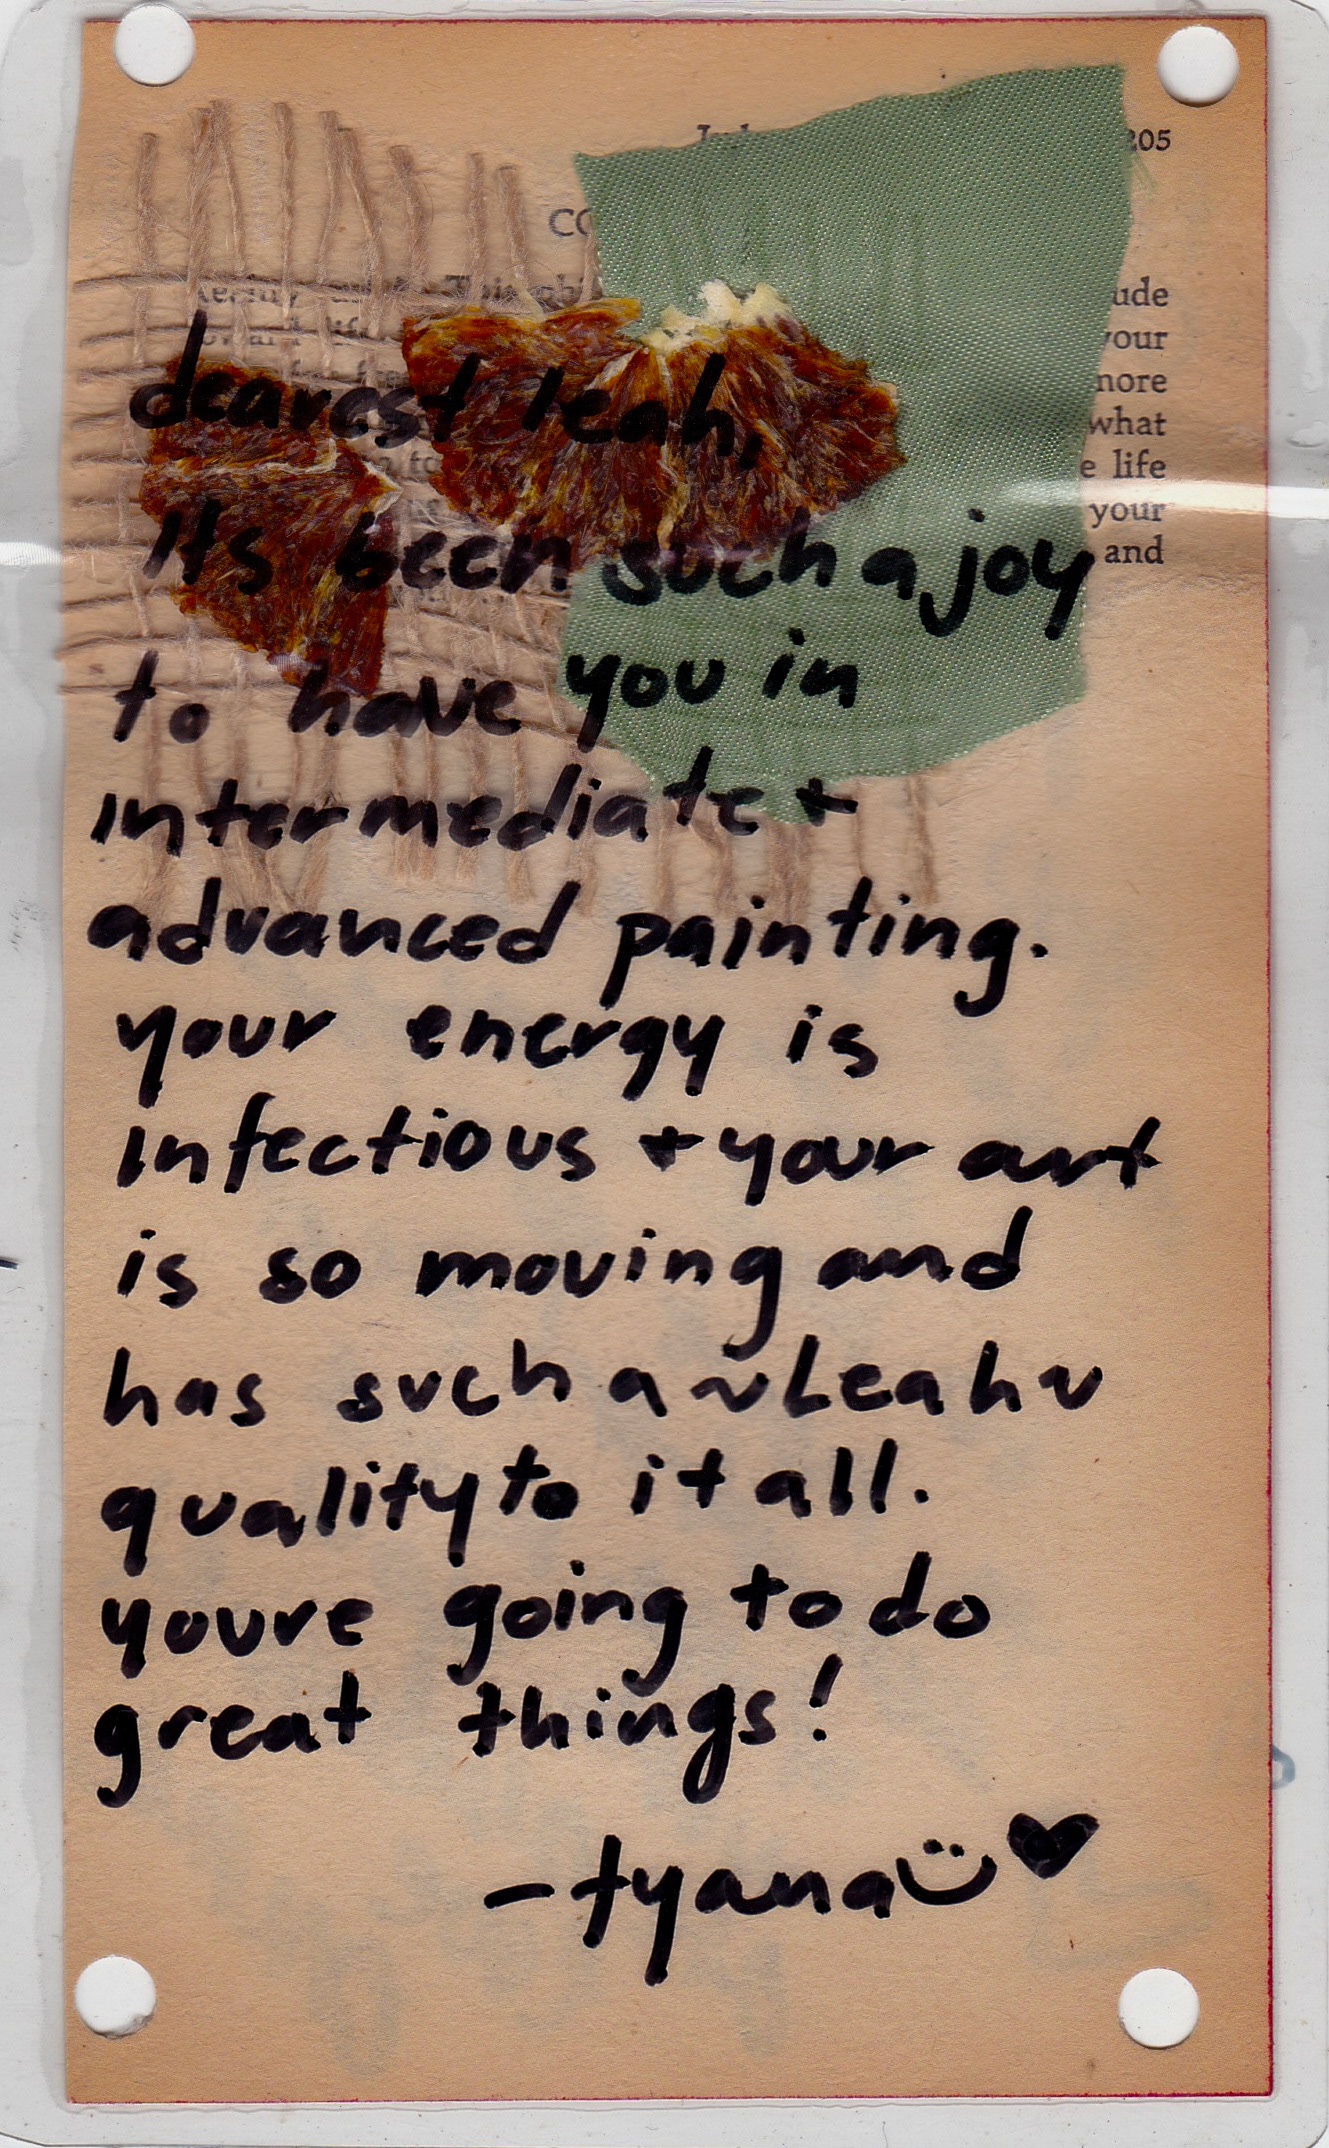 205
ude
your
more
what
e life
your
and
dearest leah,
its been such a joy
to have you in
intermediate +
advanced painting.
your energy is
infectious + your art
is so moving and
has such a ~Leah~
quality to it all.
youre going to do
great things!
- tyana